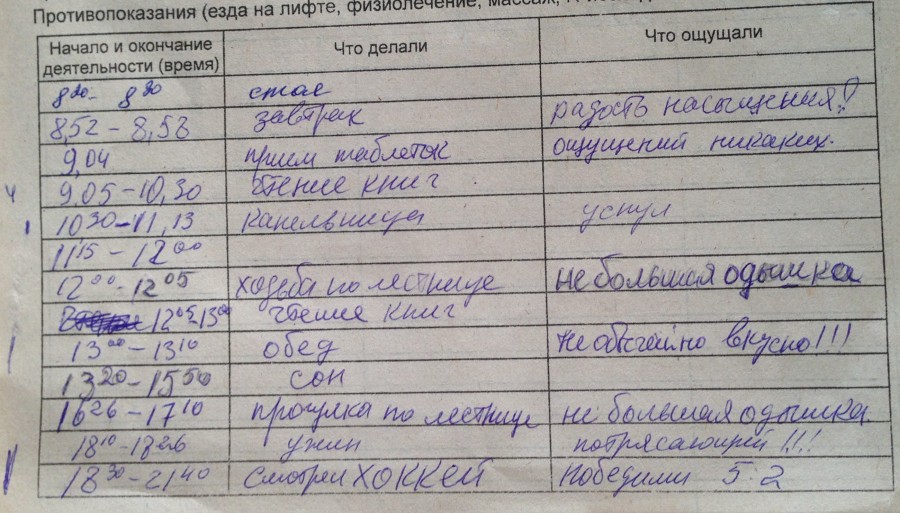 Противопоказания (езда на лифте, физиолечение, массаж,
Начало и окончание деятельности (время) Что делали Что ощущали
8 20 - 8 30
8,52 - 8,58 завтрак радость насыщения!
9,04 прием таблеток ощущений никаких.
9,05 - 10,30 чтение книг
10 30 - 11,13 капельница уснул
11 15 - 12 00
12 00 - 12 05 ходьба по лестнице не большая одышка
12 05 - 13 00 чтение книг
13 00 - 13 10 обед необычайно вкусно!!!
13 20 - 15 50 сон
16 26 - 17 10 прогулка по лестнице не большая одышка.
18 10 - 18 26 ужин потрясающий!!!
18 30 - 21 40 смотрел ХОККЕЙ победили 5:2